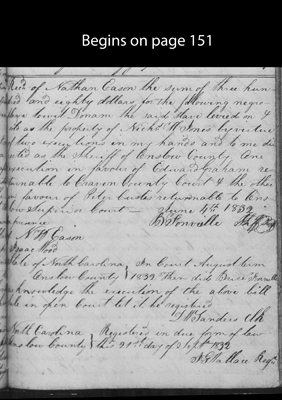 Begins on page 151
Recd. of Nathan Eason the sum of three hun
dred and eighty dollars, for the following negro
slave towit Donam the said slave levied on &
as the property of Nichs. W. Jones by virtue
of two executions in my hands and to me di
rected as the Sheriff of Onslow County One
execution in favour of Edward Graham re
turnable to Craven County Court & the other
favour of returnable to Ons
low Superior Court June 4th 1832
B Fonville
N W Eason
Isaac Wood
State of North Carolina In Court August term
Onslow County 1832 Then did Brice Fonville
acknowledge the execution of the above bill
sale in open Court let it be registered
D W Sanders Clk
North Carolina Registered in due form of law
Onslow County this 21st day of Sept 1832
Wallace Regr